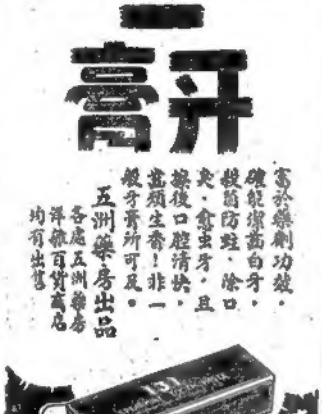 牙膏
富於藥劑功效，
確能潔齒白牙，
殺菌防蛀，除口
臭，愈虫牙，且
擦後口腔清快，
齒頰生香！非一
般牙膏所可及。
五洲藥房出品
各處五洲藥房
洋雜百貨商店
均有出售
131